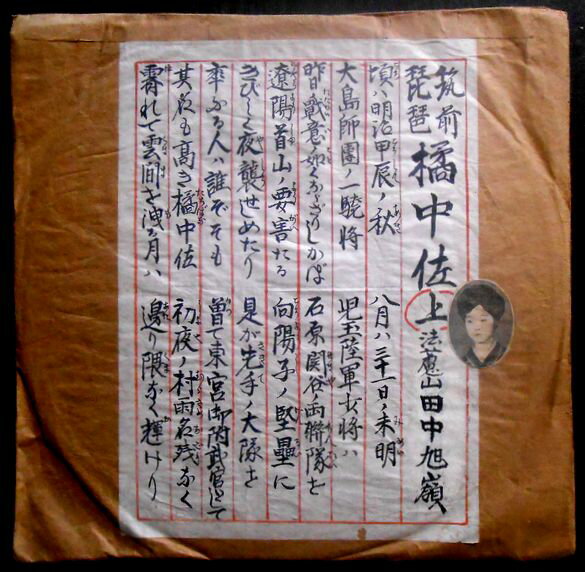 筑前
琵琶
橘中佐
上
田中旭嶺
頃ハ明治甲辰ノ秋 八月ハ三十一日ノ未明
大島師團ノ一驍将 児玉陸軍少将ハ
昨日戰意ノ如くならざりしかば 石原関谷ノ両聯隊を
遼陽首山ノ要害たる 向陽子ノ堅壘に
きびしく夜襲せしめたり 見が先手ノ大隊を
率ふる人ハ誰ぞそも 曽て東宮御附武官にて
其名も高き橘中佐 初夜ノ村雨名残なく
霽れて雲間を洩る月ハ 邊り隈なく輝けり